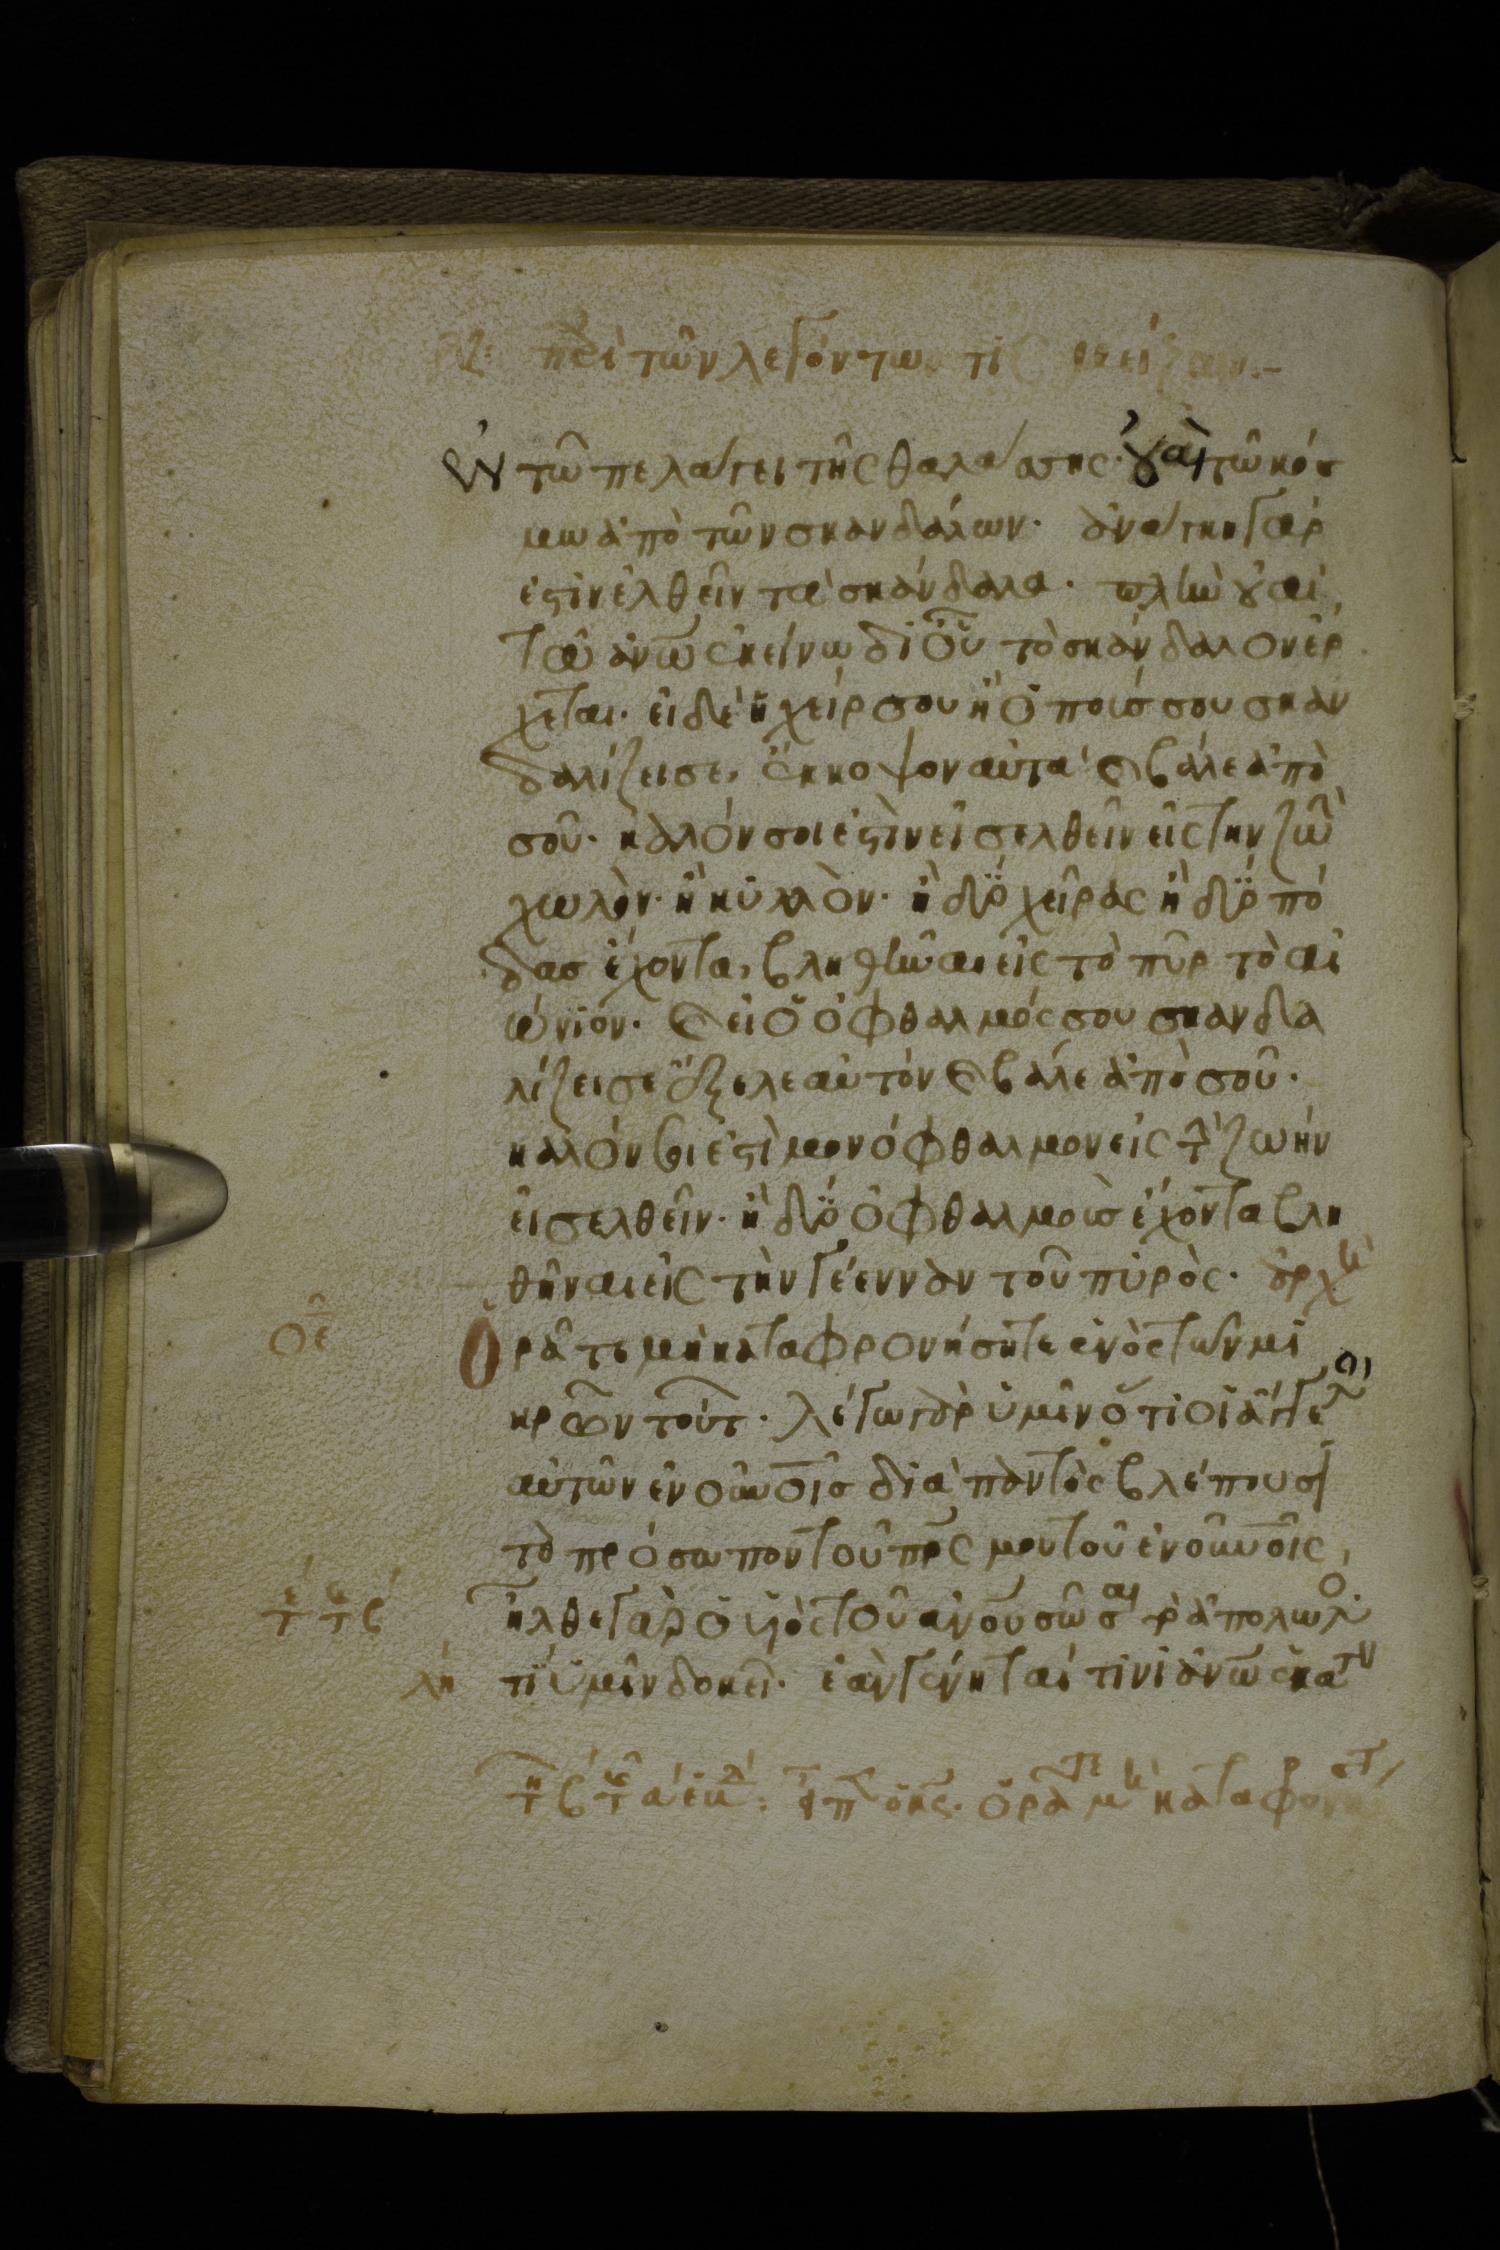 πε̣ρὶ τῶν λεγόντων τίς μείζων:-
ἐν τῶ πελάγει τῆς θαλάσσης· οὐαὶ τῶ κόσ
μω ἀπὸ τῶν σκανδάλων· ἀνάγκη γάρ
ἐστὶν ἐλθεῖν τὰ σκάνδαλα· πλὴν οὐαὶ
τῶ ἀνω ἐκείνω δι' οὗ τὸ σκάνδαλον ἔρ
χεται· εἰ δὲ ἡ χείρ σου ἢ ὁ πούς σου σκαν
δαλίζει σε, ἔκκοψον αὐτὰ καὶ βάλε ἀπὸ
σοῦ· καλόν σοι ἐστὶν εἰσελθεῖν εἰς τὴν ζωὴν
χωλὸν· ἢ κυλλὸν· ἢ δύο χεῖρας ἢ δύο πό
δας ἔχοντα, βληθῆναι εἰς τὸ πῦρ τὸ αἰ
ώνιον· καὶ εἰ ὁ ὀφθαλμός σου σκανδα
λίζει σε ἔξελε αὐτὸν καὶ βάλε ἀπὸ σοῦ·
καλόν σοι ἐστὶ μονόφθαλμον εἰς τ ζωήν
εἰσελθεῖν· ἢ δύο ὀφθαλμοὺς ἔχοντα βλη
θῆναι εἰς τὴν γέενναν τοῦ πυρὸς· ἀρχὴ
οε
ὁρᾶτε μὴ καταφρονήσητε ἑνὸς τῶν μι
κρῶν τούτ· λέγω γὰρ ὑμῖν ὅτι οἱ ἄγγελοι
αὐτῶν ἐν οὐνοῖς διὰ παντὸς βλέπουσι
τὸ πρόσωπον τοῦ πρς μου τοῦ ἐν οὐνοῖς,
ἦλθε γὰρ ὁ υἱὸς τοῦ ἀνου σῶσαι τὸ ἀπολωλό
τί ὑμῖν δοκεῖ· ἐὰν γένηταί τινι ἀνω ἑκατὸν